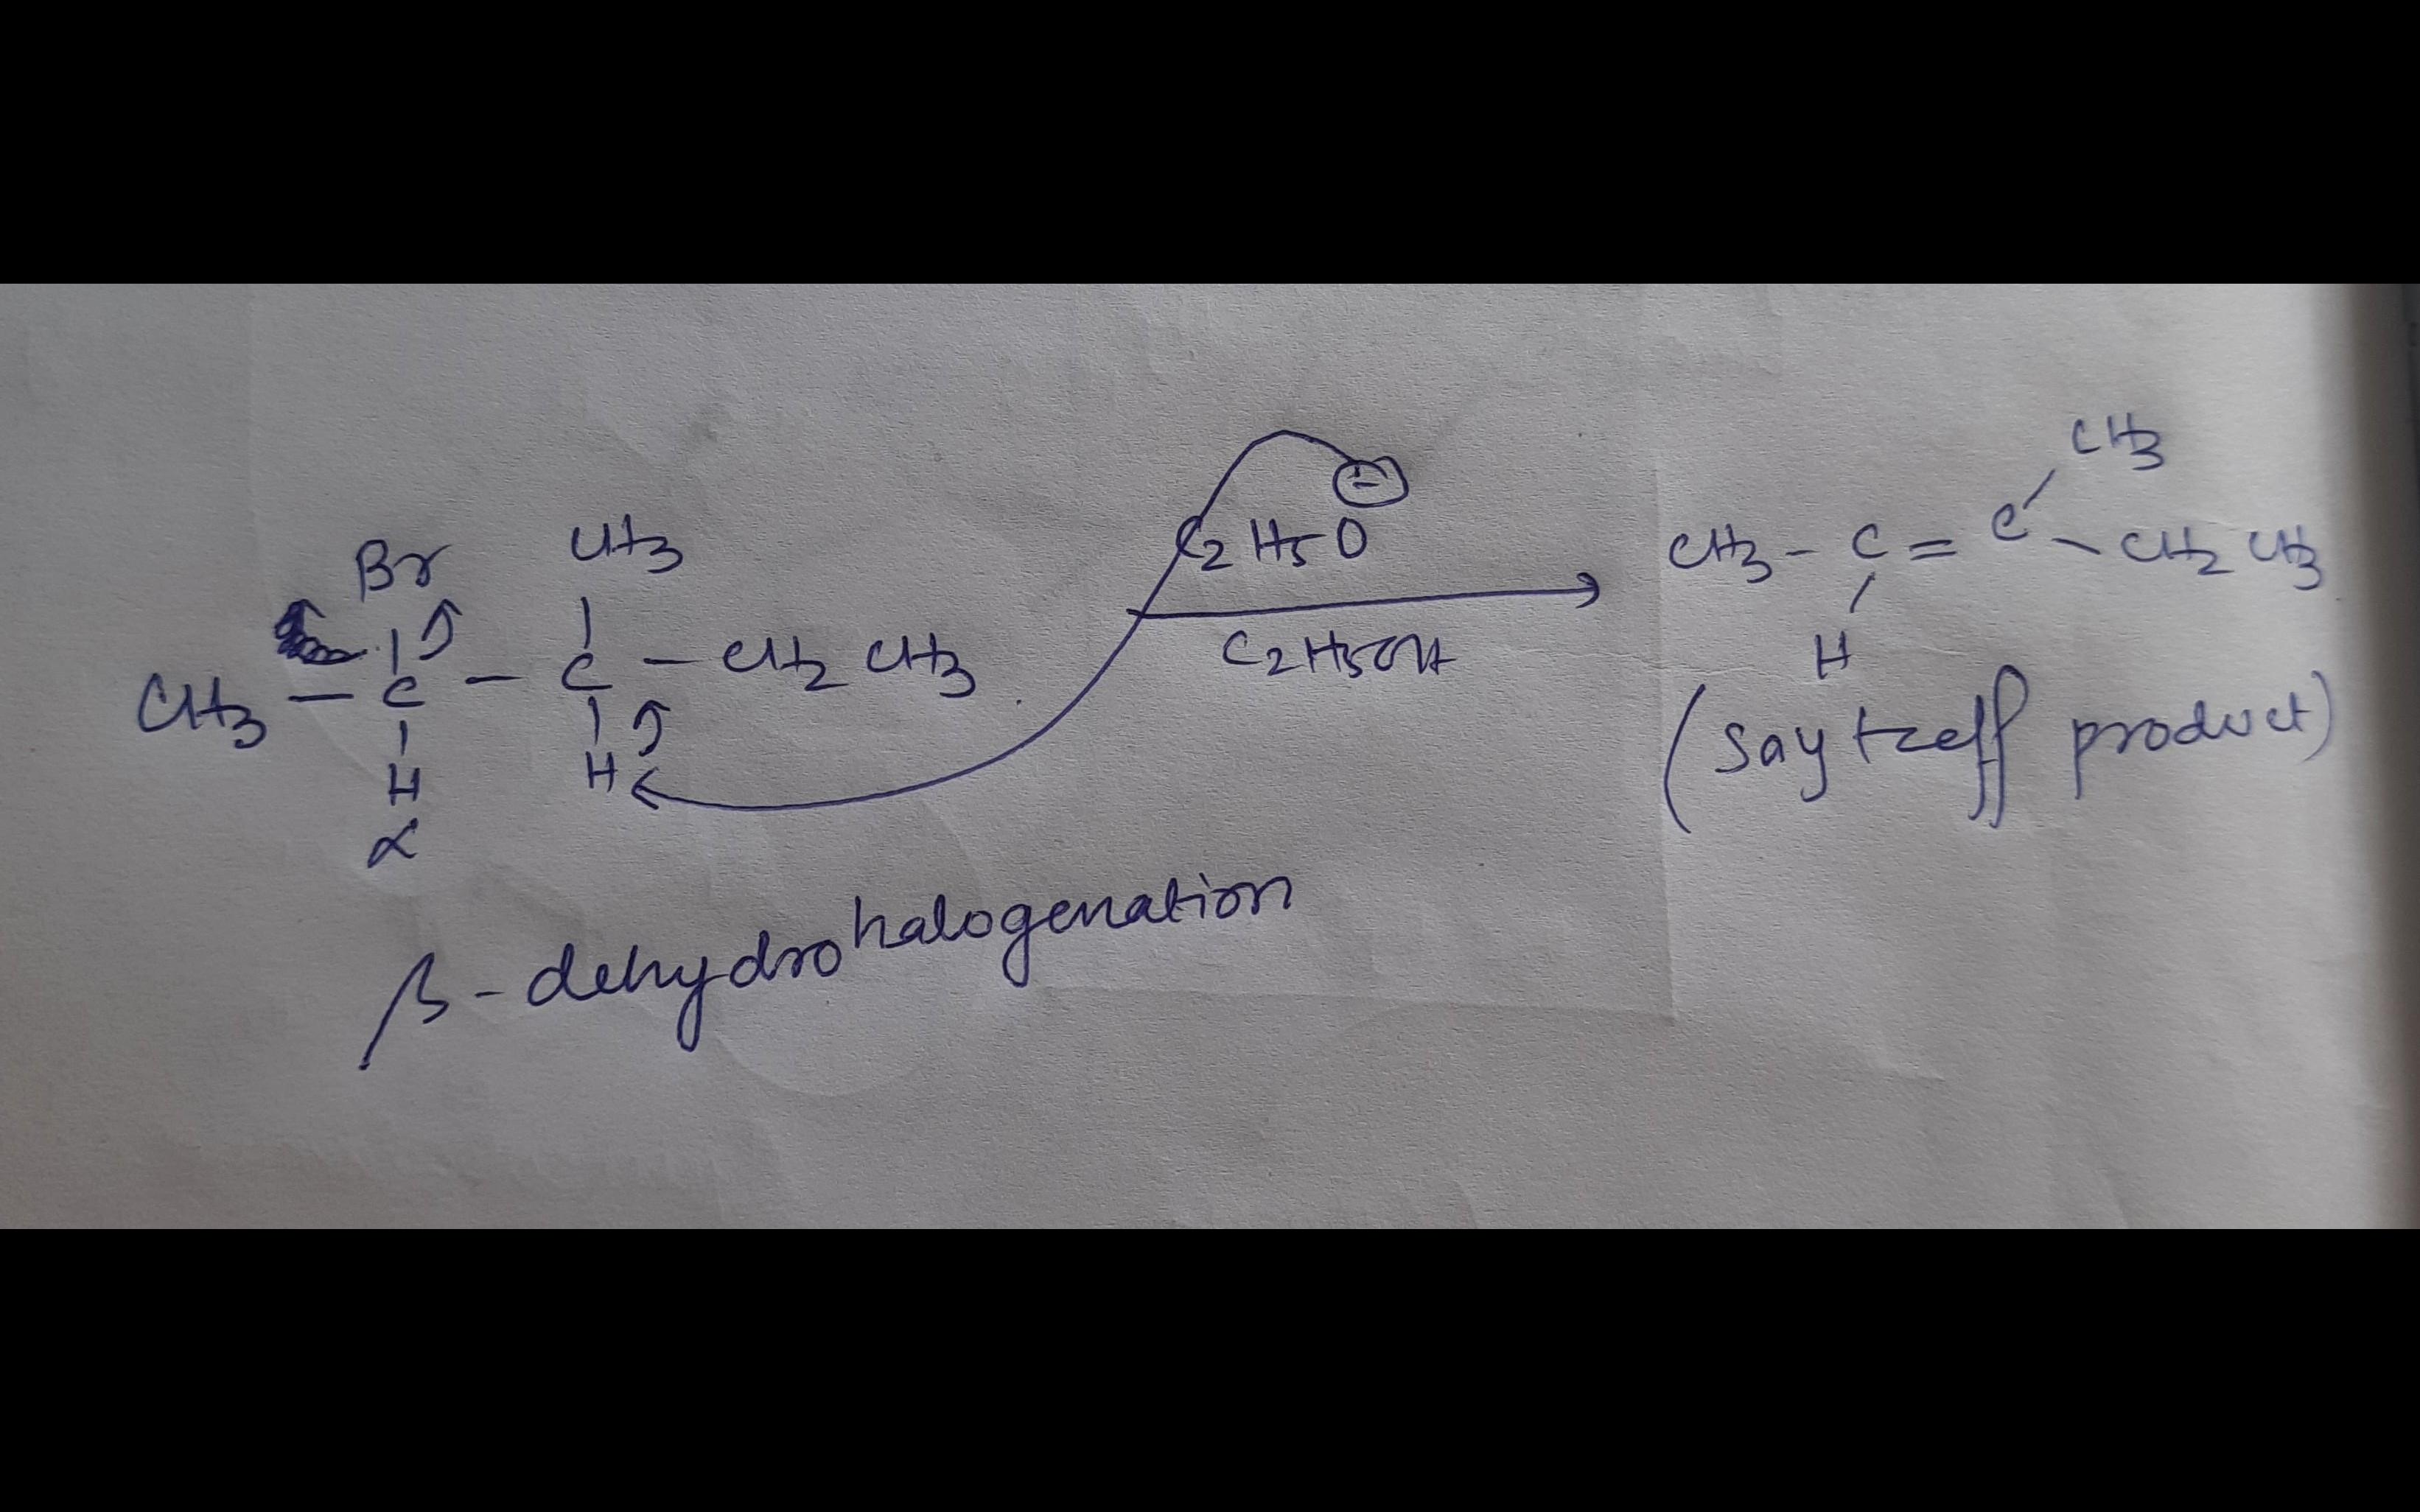 Br CH3
CH3 - C - C - CH2 CH3
H H
α
⊖
C2H5O
C2H5OH
CH3
CH3 - C = C - CH2 CH3
H
(Saytzeff product)
β-dehydrohalogenation